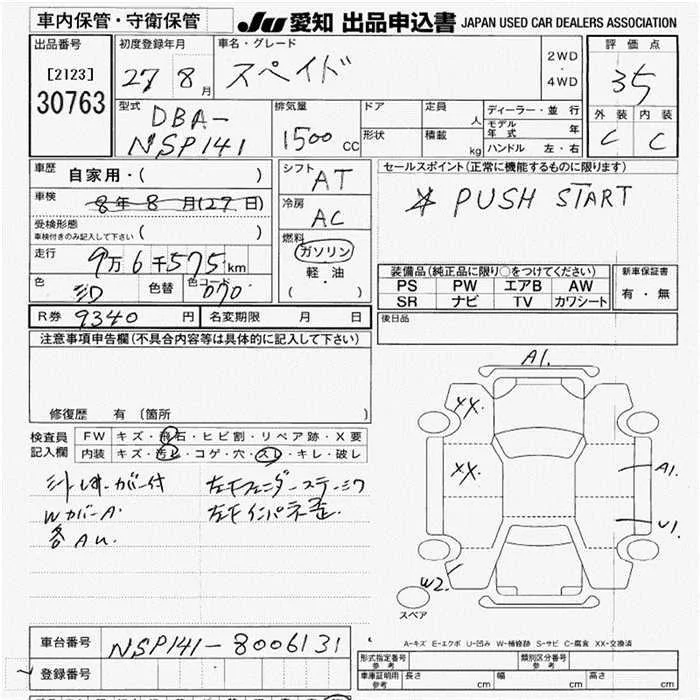 車内保管・守衛保管
JU 愛知 出品申込書 JAPAN USED CAR DEALERS ASSOCIATION
出品番号 初度登録年月 車名・グレード 2WD ・ 4WD 評価点
[2123] 30763 27 8月 スペイド 35
型式 DBA-NSP141 排気量 1500cc ドア 定員 人 ディーラー・並行 外装 内装
形状 積載 kg モデル年式 年 C C
ハンドル 左・右
車歴 自家用・( ) シフト AT セールスポイント(正常に機能するものに限ります)
車検 8年8月(27日) 冷房 AC * PUSH START
受検形態 車検付きのみ記入して下さい ( )
走行 9万6千575km 燃料 ガソリン 軽・油 ( )
装備品(純正品に限り○をつけてください) 新車保証書
PS PW エアB AW 有・無
SR ナビ TV カワシート
色 色替 色コード 070
R券 9340円 名変期限 月 日 後日品
注意事項申告欄(不具合内容等は具体的に記入して下さい)
修復歴 有(箇所 )
検査員記入欄 FW キズ・飛石・ヒビ割・リペア跡・X要
内装 キズ・汚れ・コゲ・穴・スレ・キレ・破レ
左右フェンダーステーシワ
WカバーA 左右インパネ歪
各AU
A1.
XX.
XX.
A1.
U1.
W2.
スペア
A-キズ E-エクボ U-凹み W-補修跡 S-サビ C-腐食 XX-交換済
車台番号 NSP141-8006131
形式指定番号 参考 類別区分番号 参考
登録番号 車庫証明用 参考 長さ cm 幅 cm 高さ cm